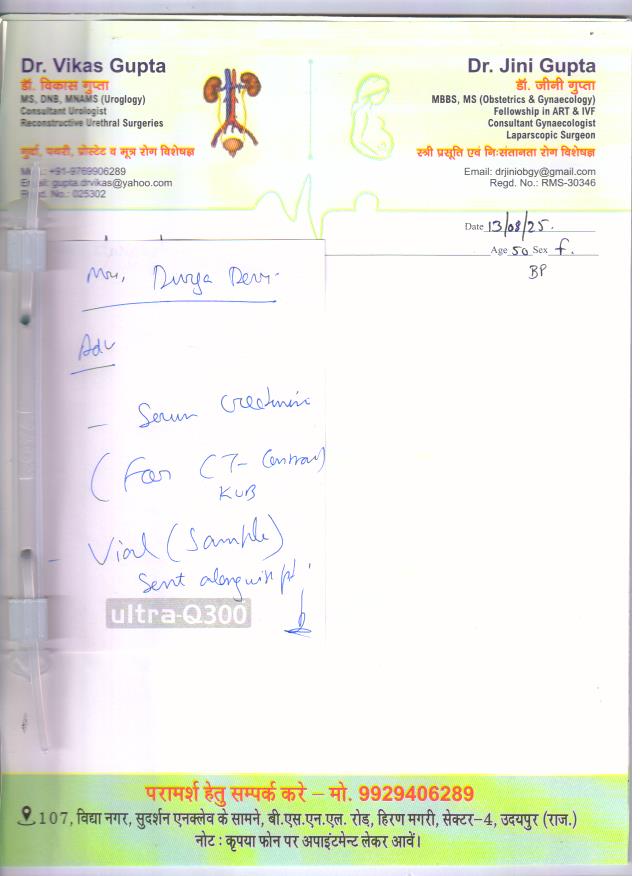 Dr. Vikas Gupta
डॉ. विकास गुप्ता
MS, DNB, MNAMS (Uroglogy)
Consultant Urologist
Reconstructive Urethral Surgeries
गुर्दा, पथरी, प्रोस्टेट व मूत्र रोग विशेषज्ञ
+91-9769906289
Email: gupta.drvikas@yahoo.com
Regd. No.: 025302
Dr. Jini Gupta
डॉ. जीनी गुप्ता
MBBS, MS (Obstetrics & Gynaecology)
Fellowship in ART & IVF
Consultant Gynaecologist
Laparscopic Surgeon
स्त्री प्रसूति एवं निःसंतानता रोग विशेषज्ञ
Email: drjiniobgy@gmail.com
Regd. No.: RMS-30346
Date 13/08/25.
Age 50 Sex f.
BP
Devi
Adv
- Serum Creatinine
(For CT- Contrast)
KUB
- Vial (Sample)
Sent along with pt.
ultra-Q300
परामर्श हेतु सम्पर्क करे – मो. 9929406289
107, विद्या नगर, सुदर्शन एनक्लेव के सामने, बी.एस.एन.एल. रोड़, हिरण मगरी, सेक्टर-4, उदयपुर (राज.)
नोट : कृपया फोन पर अपाइंटमेन्ट लेकर आवें।